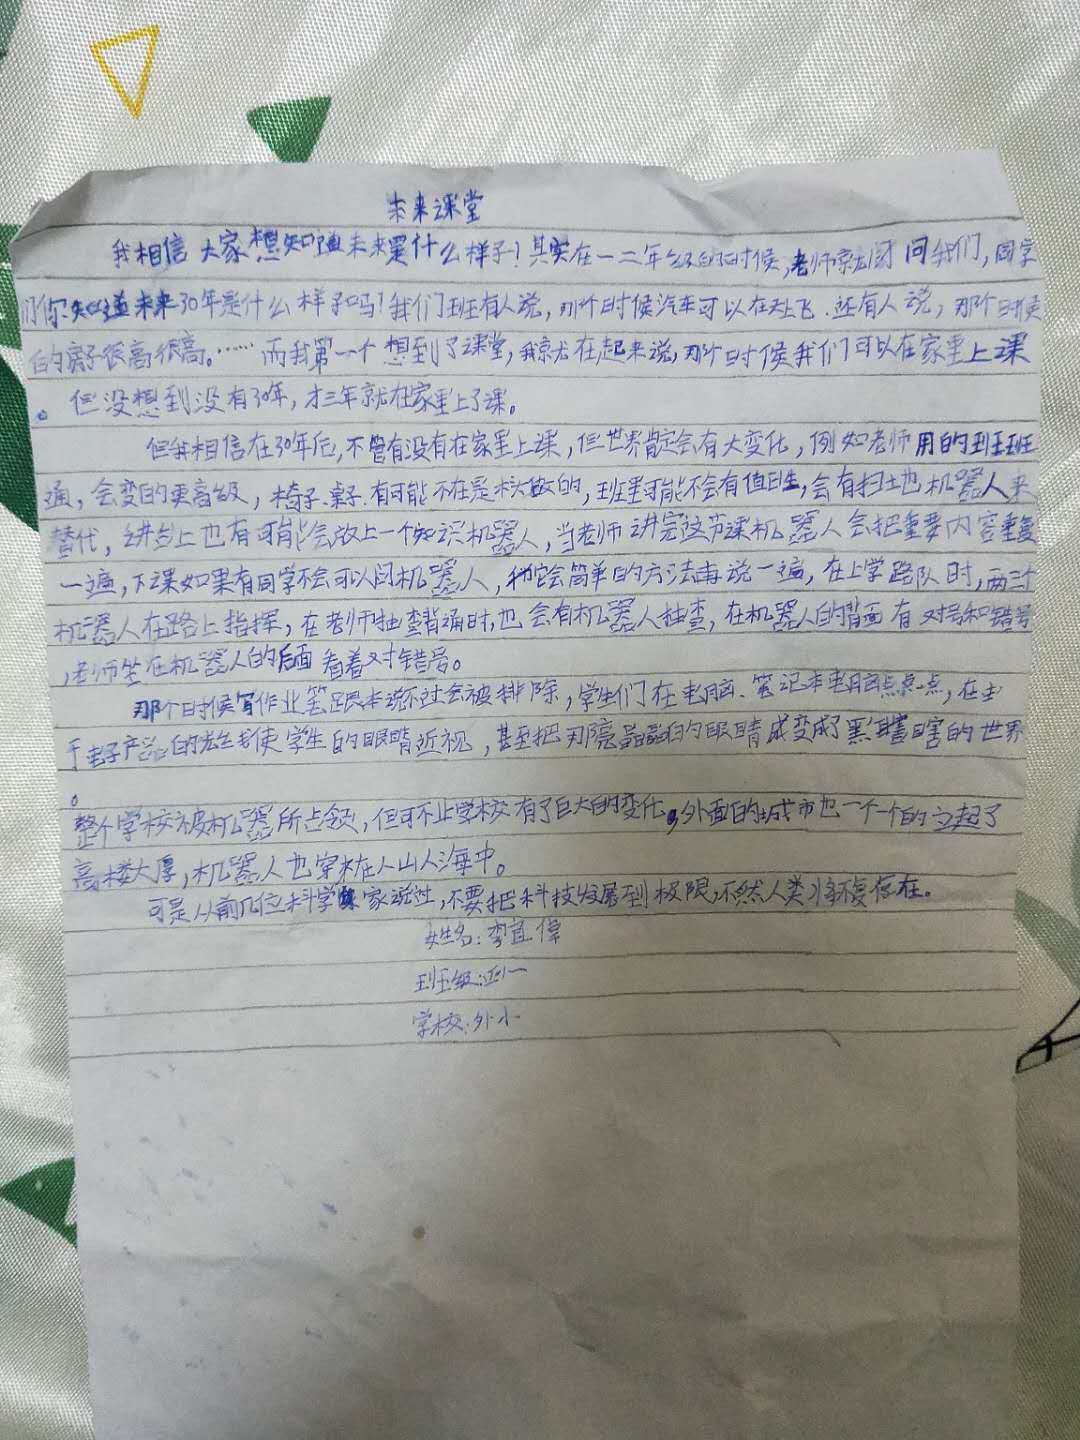 未来课堂
我相信大家想知道未来是什么样子!其实在一二年级的时候,老师就问问我们,同学
们你知道未来30年是什么样子吗?我们班有人说,那个时候汽车可以在天上飞.还有人说,那个时候
的房子很高很高。……而我第一个想到了课堂,我就在起来说,那个时候我们可以在家里上课
。但没想到没有30年,才三年就在家里上了课。
但我相信在30年后,不管有没有在家里上课,但世界肯定会有大变化,例如老师用的班班
通,会变的更高级,椅子.桌子.有可能不在是木头做的,班里可能不会有值日生,会有扫地机器人来
替代,讲台上也有可能会放上一个知识机器人,当老师讲完这节课机器人会把重要内容重复
一遍,下课如果有同学不会可以问机器人,它会简单的方法再说一遍,在上学路队时,两过
机器人在路上指挥,在老师抽查背诵时,也会有机器人抽查,在机器人的背面有对号和错号
,老师坐在机器人的后面看着对错号。
那个时候写作业笔跟本说不过会被排除,学生们在电脑.笔记本电脑点点点,在
于电子产品的光线使学生的眼睛近视,甚至把那亮晶晶的眼睛变成了黑瞎瞎的世界
。
整个学校被机器所占领,但可不止学校有了巨大的变化,外面的城市也一个一个的立起了
高楼大厚,机器人也穿梭在人山人海中。
可是从前几位科学家说过,不要把科技发展到极限,不然人类将不复存在。
姓名:李宜偉
班级:四一
学校:外小